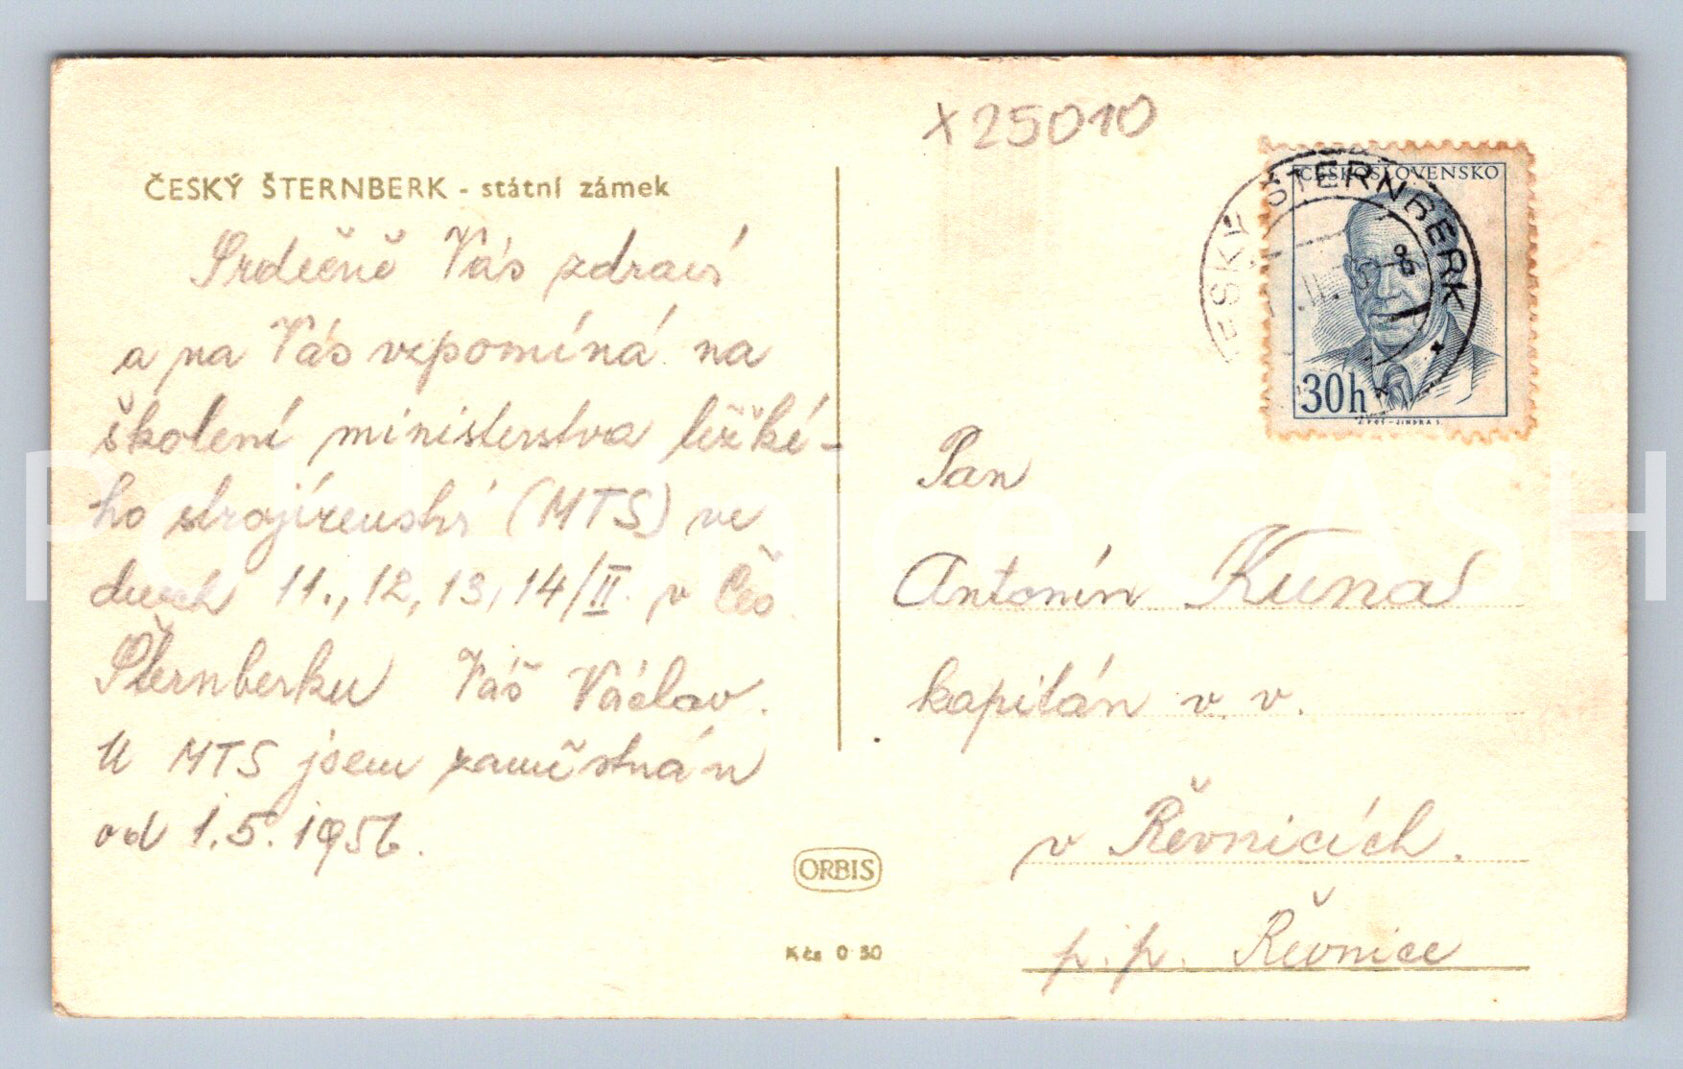 X25010
ČESKÝ ŠTERNBERK - státní zámek
Srdečně Vás zdraví
a na Vás vzpomíná na
školení ministerstva těžké-
ho strojírenství (MTS) ve
dnech 11., 12, 13, 14/II. v Čes
Šternberku Váš Václav.
U MTS jsem zaměstnán
od 1.5.1956.
ČESKOSLOVENSKO
30h
ESKÝ ŠTERNBERK
Pan
Antonín Kuna
kapitán v v.
v Řevnicích.
p.p. Řevnice
ORBIS
Kčs 0 30
Pohlednice GASH